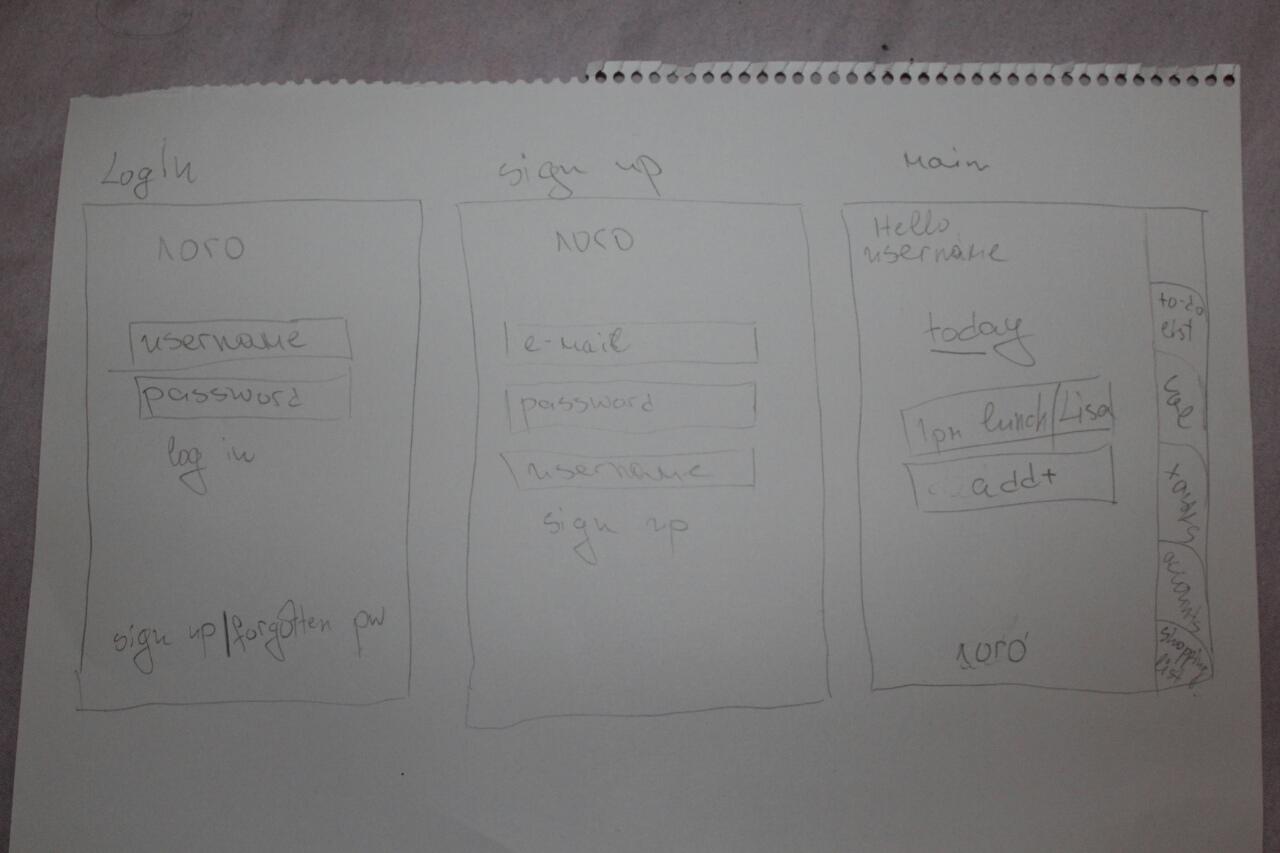 LogIn
noro
username
password
log in
sign up/forgotten pw
sign up
noro
e-mail
password
username
sign up
Main
Hello
username
today
1pm lunch/Lisa
add+
noro
to-do
list
accounts
shopping
list